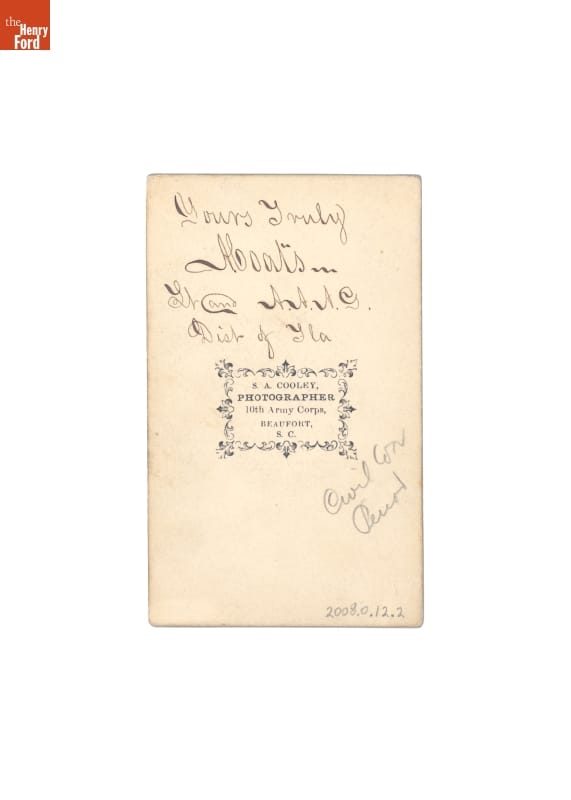 the
Henry
Ford
Yours Truly
Lt and A.A.A.G.
Dist of Fla
S. A. COOLEY,
PHOTOGRAPHER
10th Army Corps,
BEAUFORT,
S. C.
Civil War
Period
2008.0.12.2